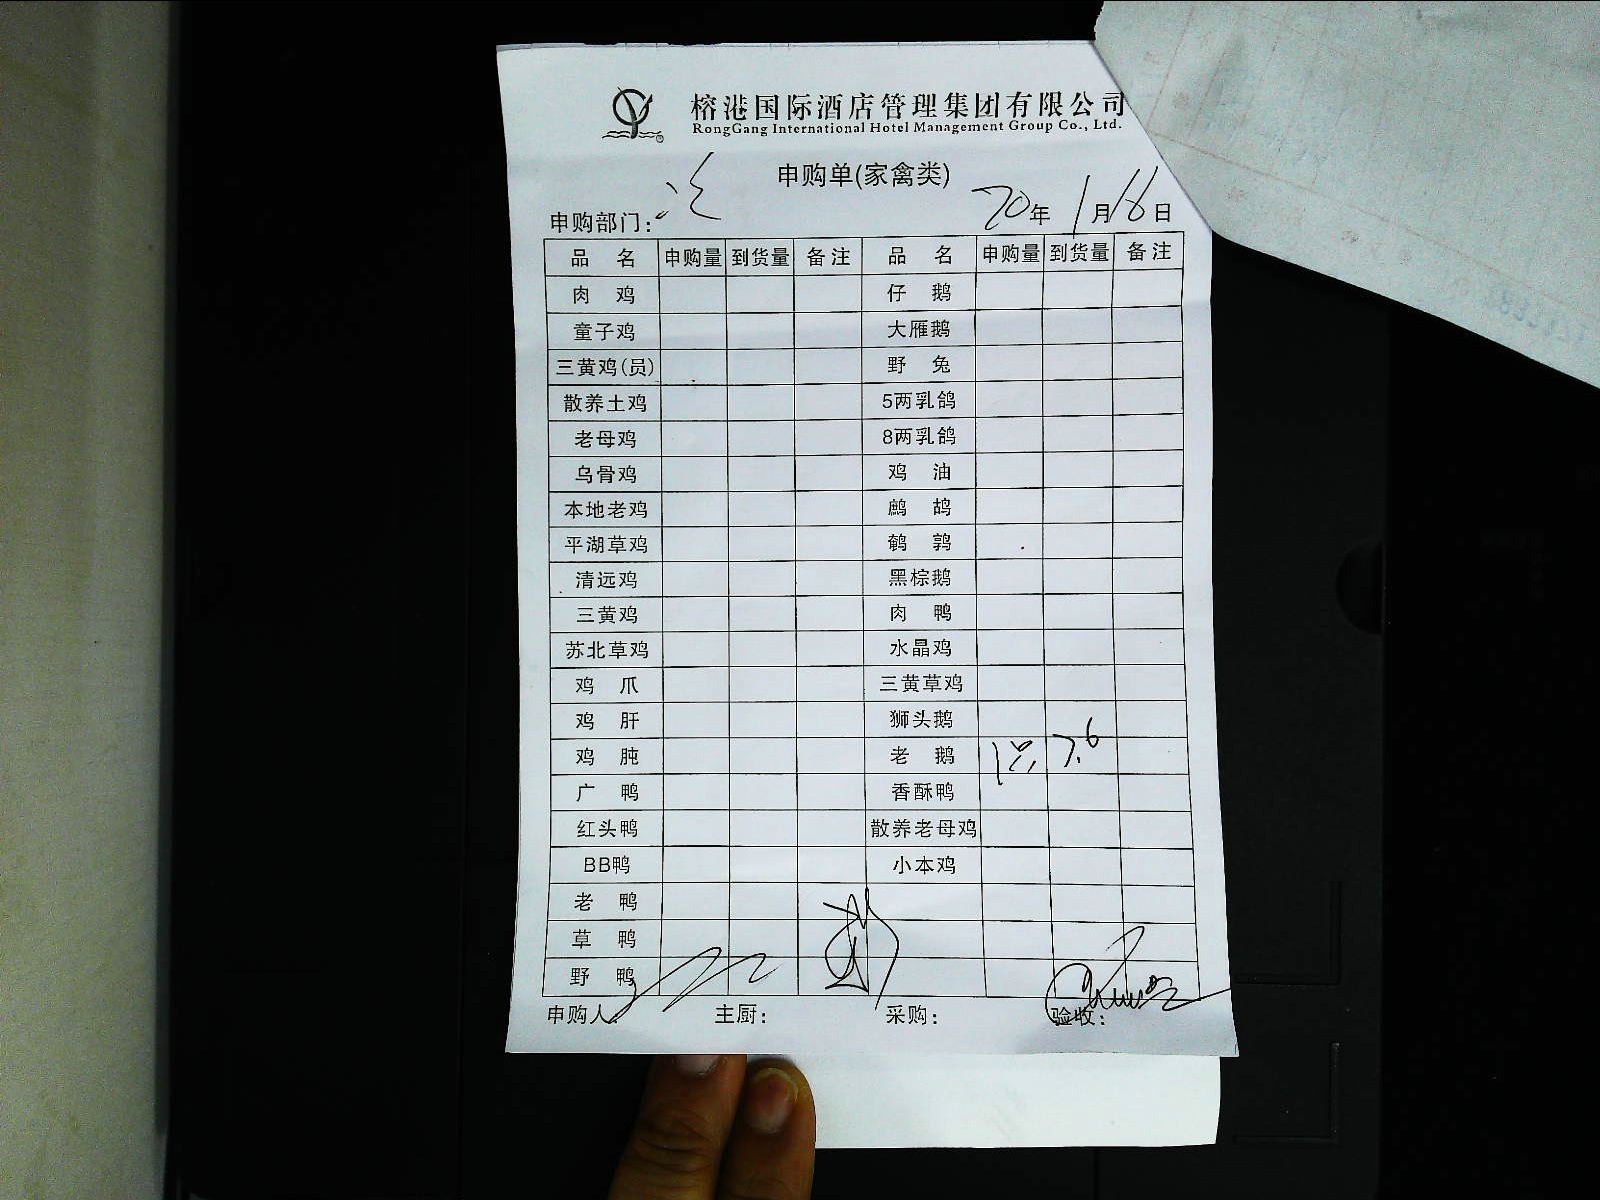 榕港国际酒店管理集团有限公司
RongGang International Hotel Management Group Co., Ltd.
申购单(家禽类)
申购部门: 20年1月18日
品名 申购量 到货量 备注 品名 申购量 到货量 备注
肉鸡 仔鹅
童子鸡 大雁鹅
三黄鸡(员) 野兔
散养土鸡 5两乳鸽
老母鸡 8两乳鸽
乌骨鸡 鸡油
本地老鸡 鹧鸪
平湖草鸡 鹌鹑
清远鸡 黑棕鹅
三黄鸡 肉鸭
苏北草鸡 水晶鸡
鸡爪 三黄草鸡
鸡肝 狮头鹅
鸡肫 老鹅 7.6
广鸭 香酥鸭
红头鸭 散养老母鸡
BB鸭 小本鸡
老鸭
草鸭
野鸭
申购人: 主厨: 采购: 验收: